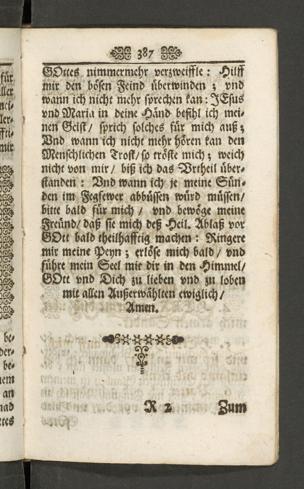 387
GOttes nimmermehr verzweiffle: Hilff
mir den bösen Feind überwinden; vnd
wann ich nicht mehr sprechen kan: JEsus
vnd Maria in deine Händ befihl ich mei-
nen Geist / sprich solches für mich auß;
Vnd wann ich nicht mehr hören kan den
Menschlichen Trost / so tröste mich; weich
nicht von mir / biß ich das Vrtheil über-
standen: Vnd wann ich je meine Sün-
den im Fegfewer abbüssen würd müssen /
bitte bald für mich / vnd bewöge meine
Freünd / daß sie mich deß Heil. Ablaß vor
GOtt bald theilhafftig machen: Ringere
mir meine Peyn; erlöse mich bald / vnd
führe mein Seel mie dir in den Himmel /
GOtt vnd Dich zu lieben vnd zu loben
mit allen Außerwählten ewiglich /
Amen.
R 2 Zum